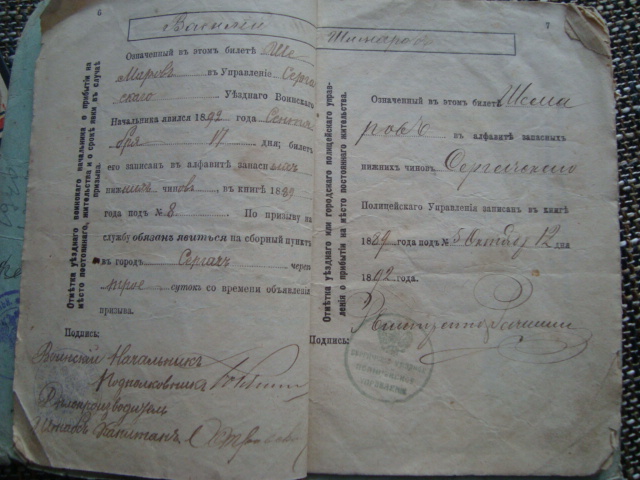 6
Василий
Означенный въ этомъ билетѣ Ше
маровъ въ Управленіе Серга
скаго Уѣзднаго Воинскаго
Начальника явился 1892 года Сентя
бря 17 дня; билетъ
его записанъ въ алфавитѣ запасныхъ
нижнихъ чиновъ въ книгѣ 1889
года подъ № 8. По призыву на
службу обязанъ явиться на сборный пунктъ
въ городъ Сергачъ через
трое сутокъ со времени объявленія
призыва.
Подпись:
Воинскій Начальникъ
Подполковникъ
Дѣлопроизводитель
Капитанъ
Отмѣтка уѣзднаго воинскаго начальника о прибытіи на
мѣсто постояннаго жительства и о срокѣ явки въ случаѣ
призыва.
7
Шемаровъ
Означенный въ этомъ билетѣ Шема
ровъ въ алфавитѣ запасныхъ
нижнихъ чиновъ Сергачскаго
Полицейскаго Управленія записанъ въ книгѣ
1889 года подъ № 5 Октября 12 дня
1892 года.
Подпись:
Отмѣтка уѣзднаго или городскаго полицейскаго управ-
ленія о прибытіи на мѣсто постояннаго жительства.